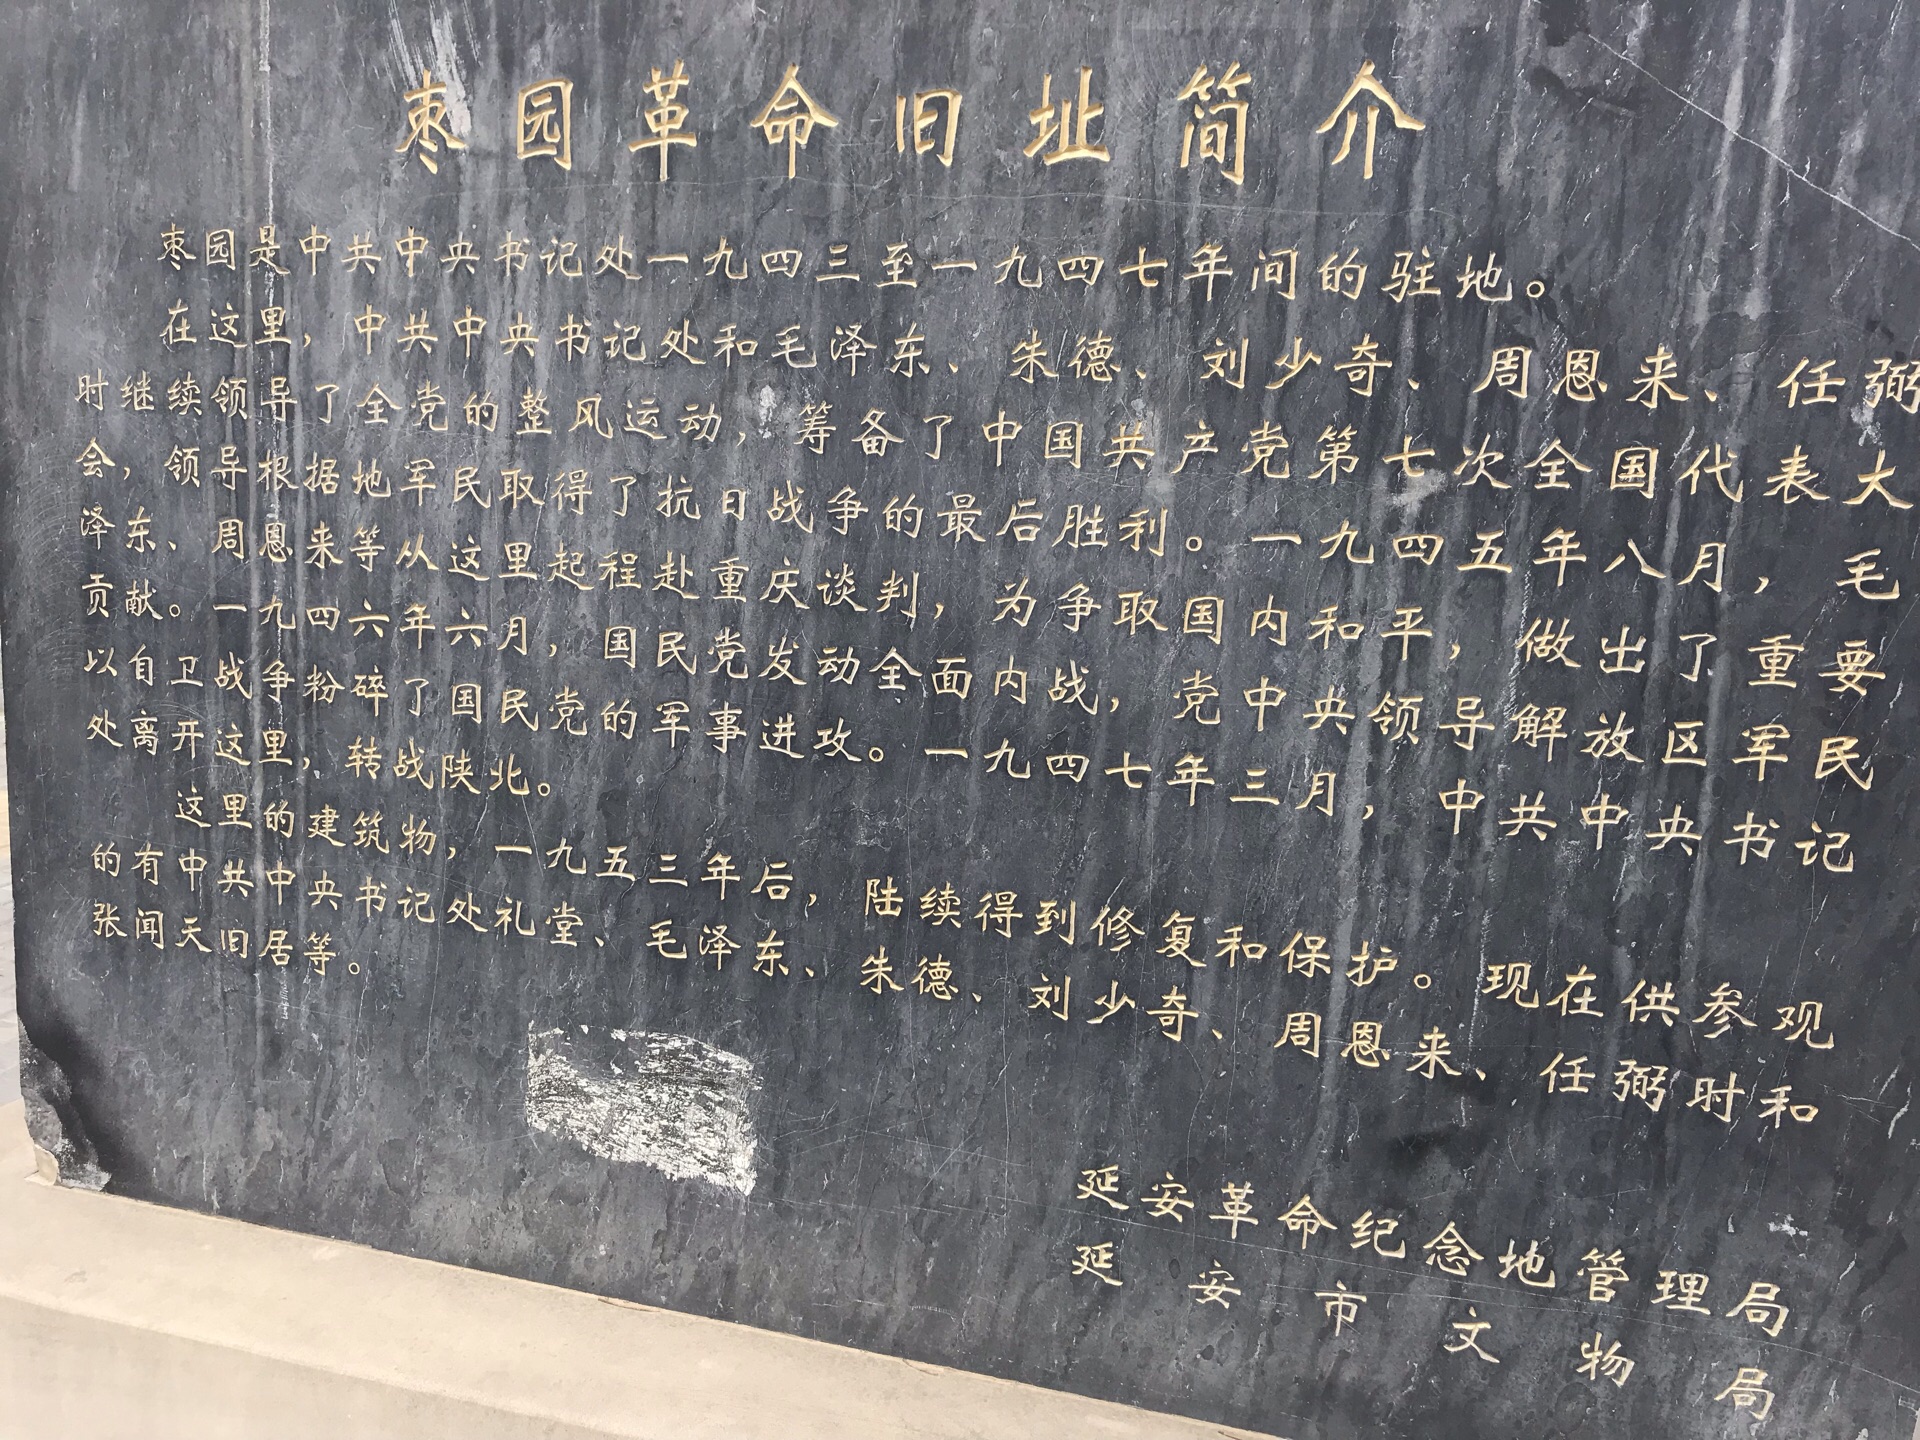 枣园革命旧址简介
枣园是中共中央书记处一九四三至一九四七年间的驻地。
在这里,中共中央书记处和毛泽东、朱德、刘少奇、周恩来、任弼
时继续领导了全党的整风运动,筹备了中国共产党第七次全国代表大
会,领导根据地军民取得了抗日战争的最后胜利。一九四五年八月,毛
泽东、周恩来等从这里起程赴重庆谈判,为争取国内和平,做出了重要
贡献。一九四六年六月,国民党发动全面内战,党中央领导解放区军民
以自卫战争粉碎了国民党的军事进攻。一九四七年三月,中共中央书记
处离开这里,转战陕北。
这里的建筑物,一九五三年后,陆续得到修复和保护。现在供参观
的有中共中央书记处礼堂、毛泽东、朱德、刘少奇、周恩来、任弼时和
张闻天旧居等。
延安革命纪念地管理局
延安市文物局